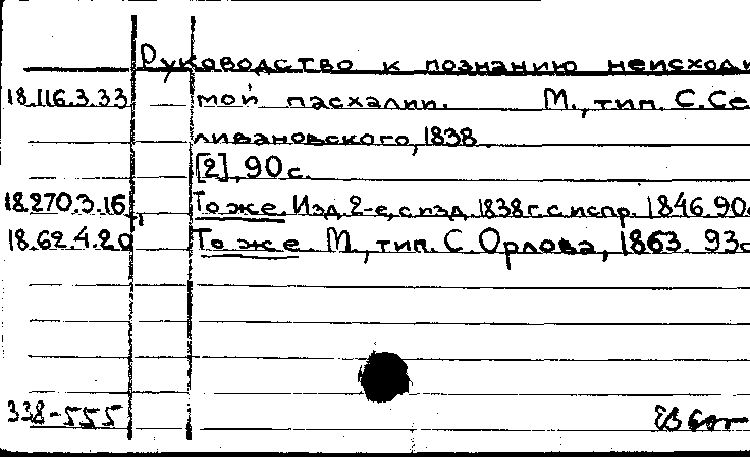 Руководство к познанию неисходи
18.116.3.33 мой пасхалии. М., тип. С. Се
ливановского, 1838.
[2], 90 с.
18.270.3.16 То же. Изд. 2-е, с изд. 1838 г. с испр. 1846. 90с
18.62.4.20 То же. М., тип. С. Орлова, 1863. 93с
338-555